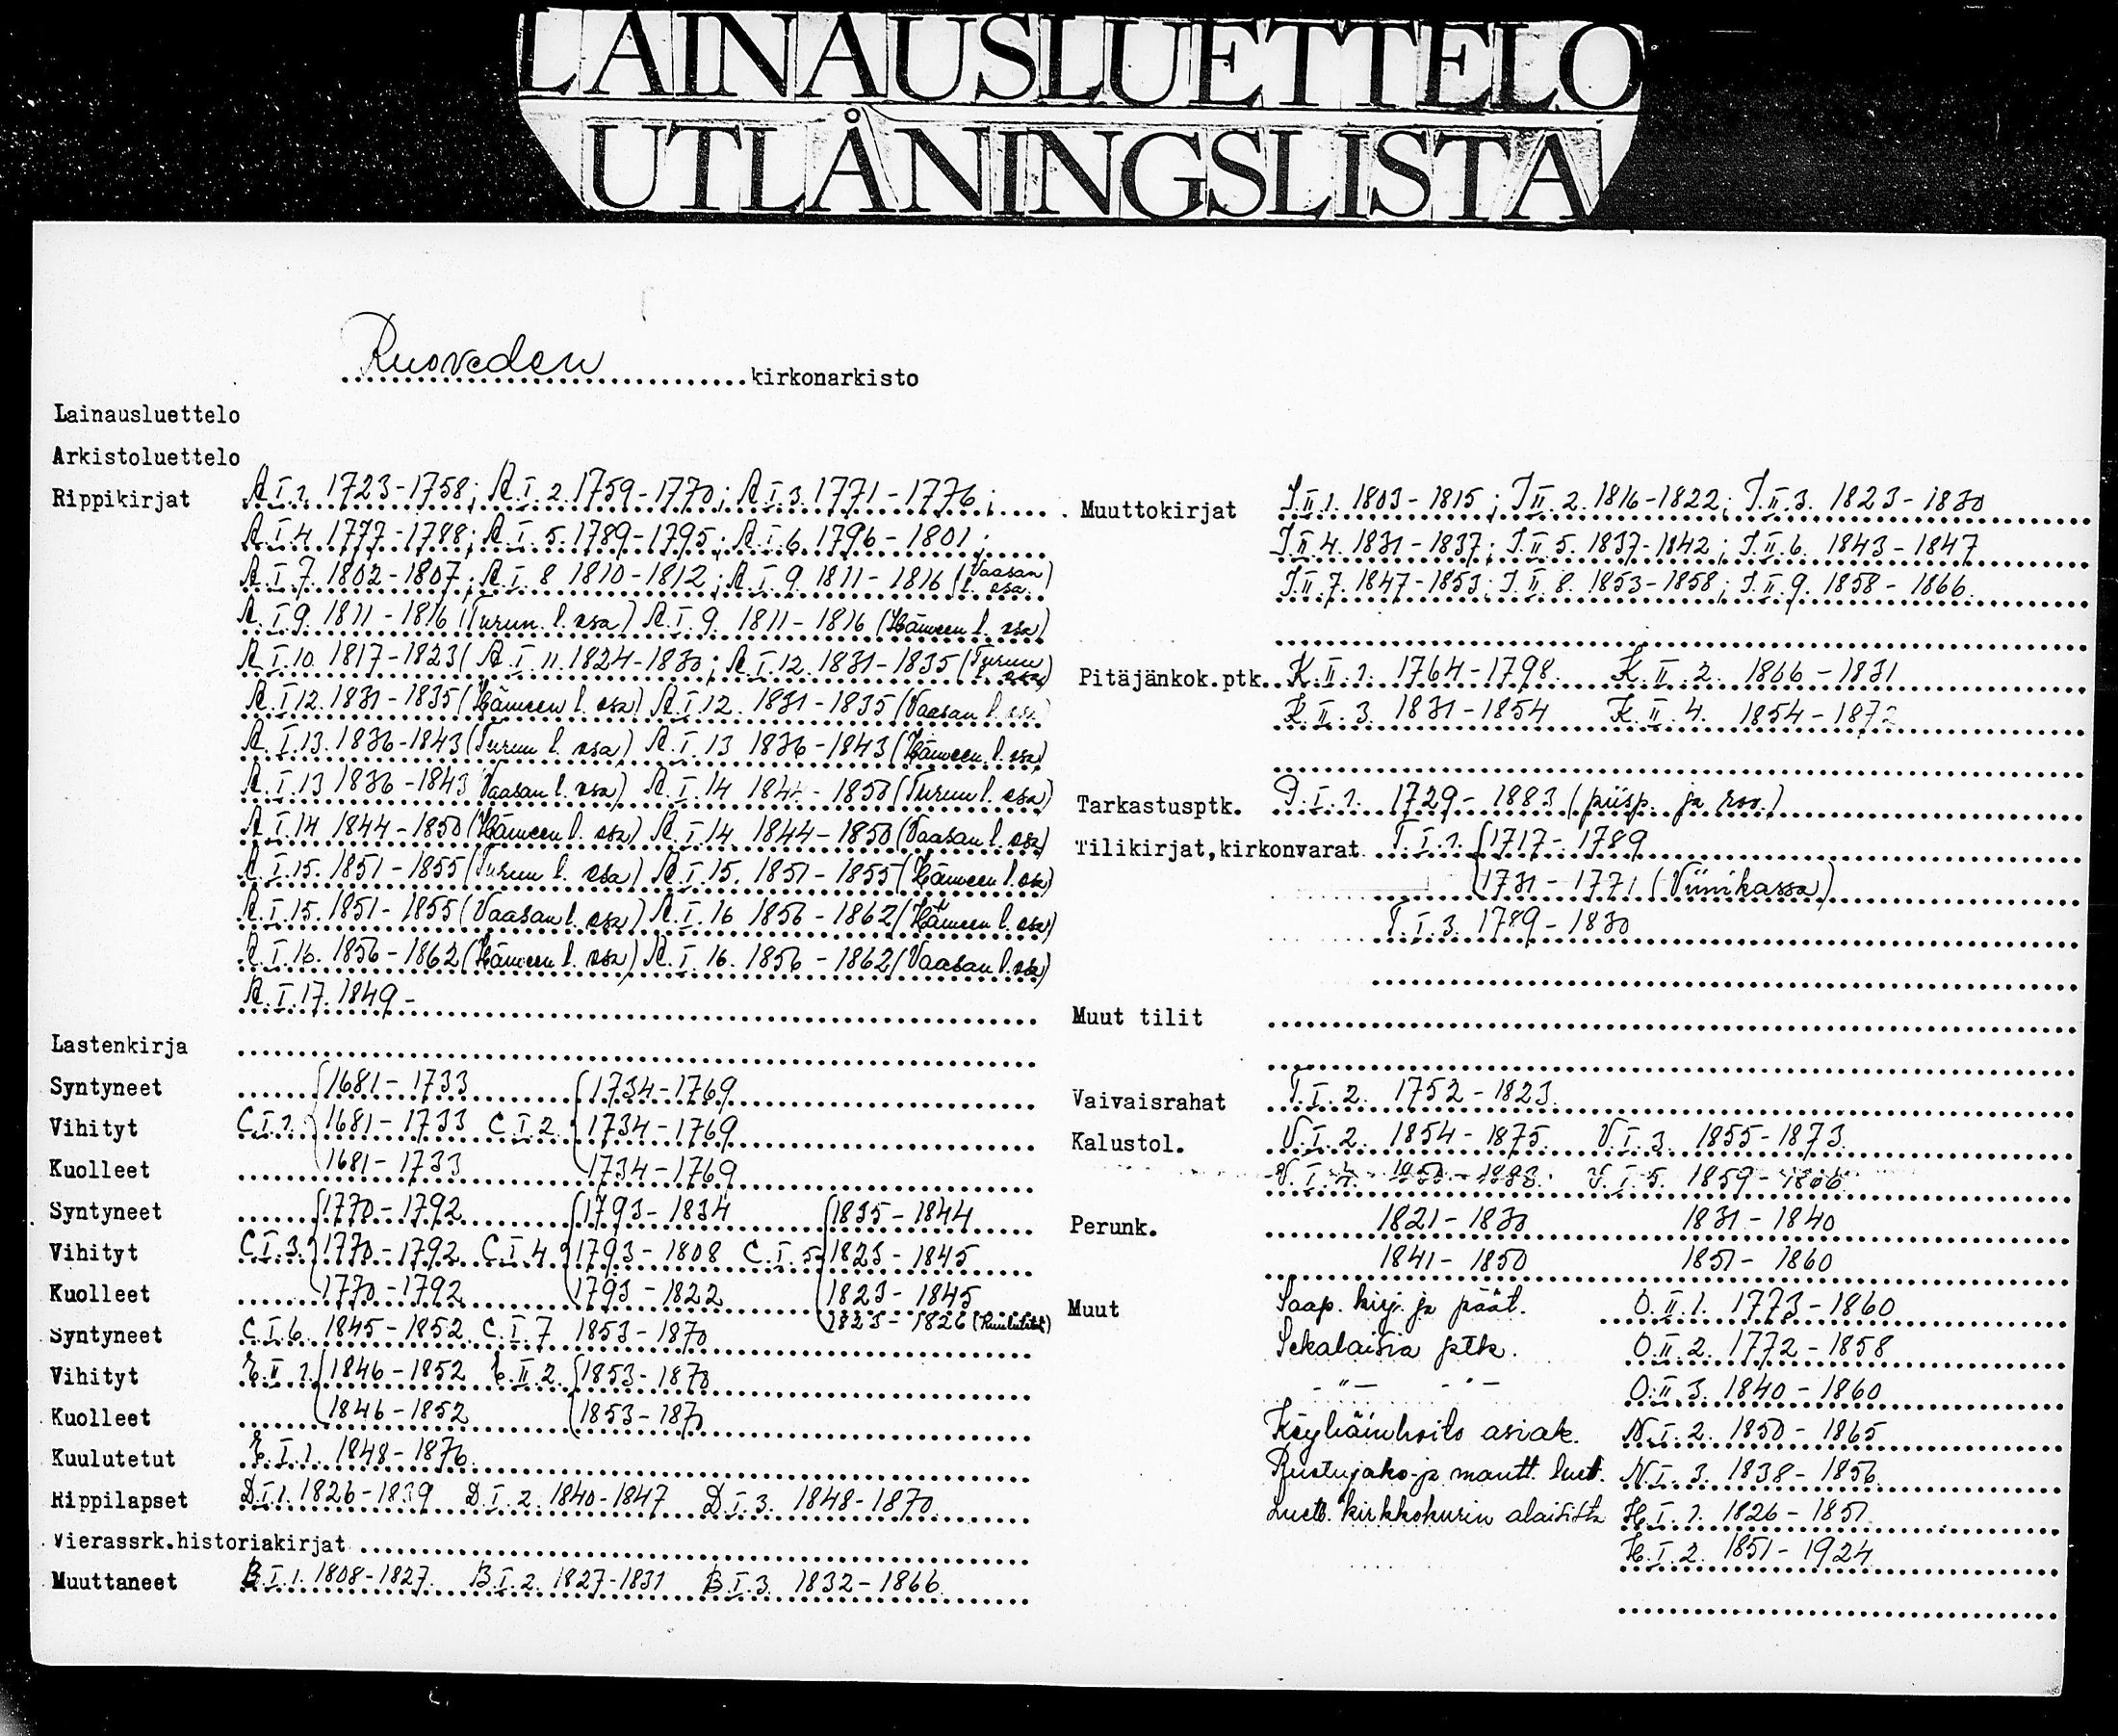 LAINAUSLUETTELO
UTLÅNINGSLISTA
Ruoveden kirkonarkisto
Lainausluettelo
Arkistoluettelo
Rippikirjat A.I.1. 1723-1758; A.I.2. 1759-1770; A.I.3. 1771-1776;
A.I.4. 1777-1788; A.I.5. 1789-1795; A.I.6. 1796-1801;
A.I.7. 1802-1807; A.I.8 1810-1812; A.I.9. 1811-1816 (Vaasan l. osa)
A.I.9. 1811-1816 (Turun l. osa) A.I.9. 1811-1816 (Hämeen l. osa)
A.I.10. 1817-1823( A.I.11. 1824-1830; A.I.12. 1831-1835 (Turun l. osa)
A.I.12. 1831-1835 (Hämeen l. osa) A.I.12. 1831-1835 (Vaasan l. osa
A.I.13. 1836-1843 (Turun l. osa) A.I.13 1836-1843 (Hämeen l. osa)
A.I.13 1836-1843 Vaasan l. osa) A.I.14 1844-1850 (Turun l. osa)
A.I.14 1844-1850 (Hämeen l. osa) A.I.14. 1844-1850 (Vaasan l. osa)
A.I.15. 1851-1855 (Turun l. osa) A.I.15. 1851-1855 (Hämeen l. osa)
A.I.15. 1851-1855 (Vaasan l. osa) A.I.16 1856-1862 (Hämeen l. osa)
A.I.16. 1856-1862 (Hämeen l. osa) A.I.16. 1856-1862 (Vaasan l. osa)
A.I.17. 1849-
Lastenkirja
Syntyneet 1681-1733 1734-1769
Vihityt C.I.1. 1681-1733 C.I.2. 1734-1769
Kuolleet 1681-1733 1734-1769
Syntyneet 1770-1792 1793-1834 1835-1844
Vihityt C.I.3. 1770-1792 C.I.4. 1793-1808 C.I.5. 1823-1845
Kuolleet 1770-1792 1793-1822 1823-1845
1823-1826
Syntyneet C.I.6. 1845-1852 C.I.7 1853-1870
Vihityt E.II.1. 1846-1852 E.II.2. 1853-1870
Kuolleet 1846-1852 1853-187
Kuulutetut E.I.1. 1848-1876
Rippilapset D.I.1. 1826-1839 D.I.2. 1840-1847 D.I.3. 1848-1870
Vierassrk.historiakirjat
Muuttaneet B.I.1. 1808-1827. B.I.2. 1827-1831 B.I.3. 1832-1866
Muuttokirjat J.II.1. 1803-1815; J.II.2. 1816-1822; J.II.3. 1823-1830
J.II.4. 1831-1837; J.II.5. 1837-1842; J.II.6. 1843-1847
J.II.7. 1847-1853; J.II.8. 1853-1858; J.II.9. 1858-1866
Pitäjänkok.ptk. K.II.1. 1764-1798 K.II.2. 1866-1831
K.II.3. 1831-1854 K.II.4. 1854-1872
Tarkastusptk. P.I.1. 1729-1883 (piisp. ja rov.)
Tilikirjat,kirkonvarat T.I.1. 1717-1789
1731-1771 (Viinikassa)
T.I.3. 1789-1830
Muut tilit
Vaivaisrahat T.I.2. 1752-1823
Kalustol. V.I.2. 1854-1875. V.I.3. 1855-1873.
V.I.4. V.I.5. 1859-1866
Perunk. 1821-1830 1831-1840
1841-1850 1851-1860
Muut Saap. kirj. ja päät. O.II.1. 1773-1860
Sekalaisia ptk. O.II.2. 1772-1858
-"- -"- O.II.3. 1840-1860
Köyhäinhoito asiak. N.I.2. 1850-1865
Ruotujako- ja mantt. luet. N.I.3. 1838-1856
Luett. kirkkokurin alaisista H.I.1. 1826-1851
H.I.2. 1851-1924